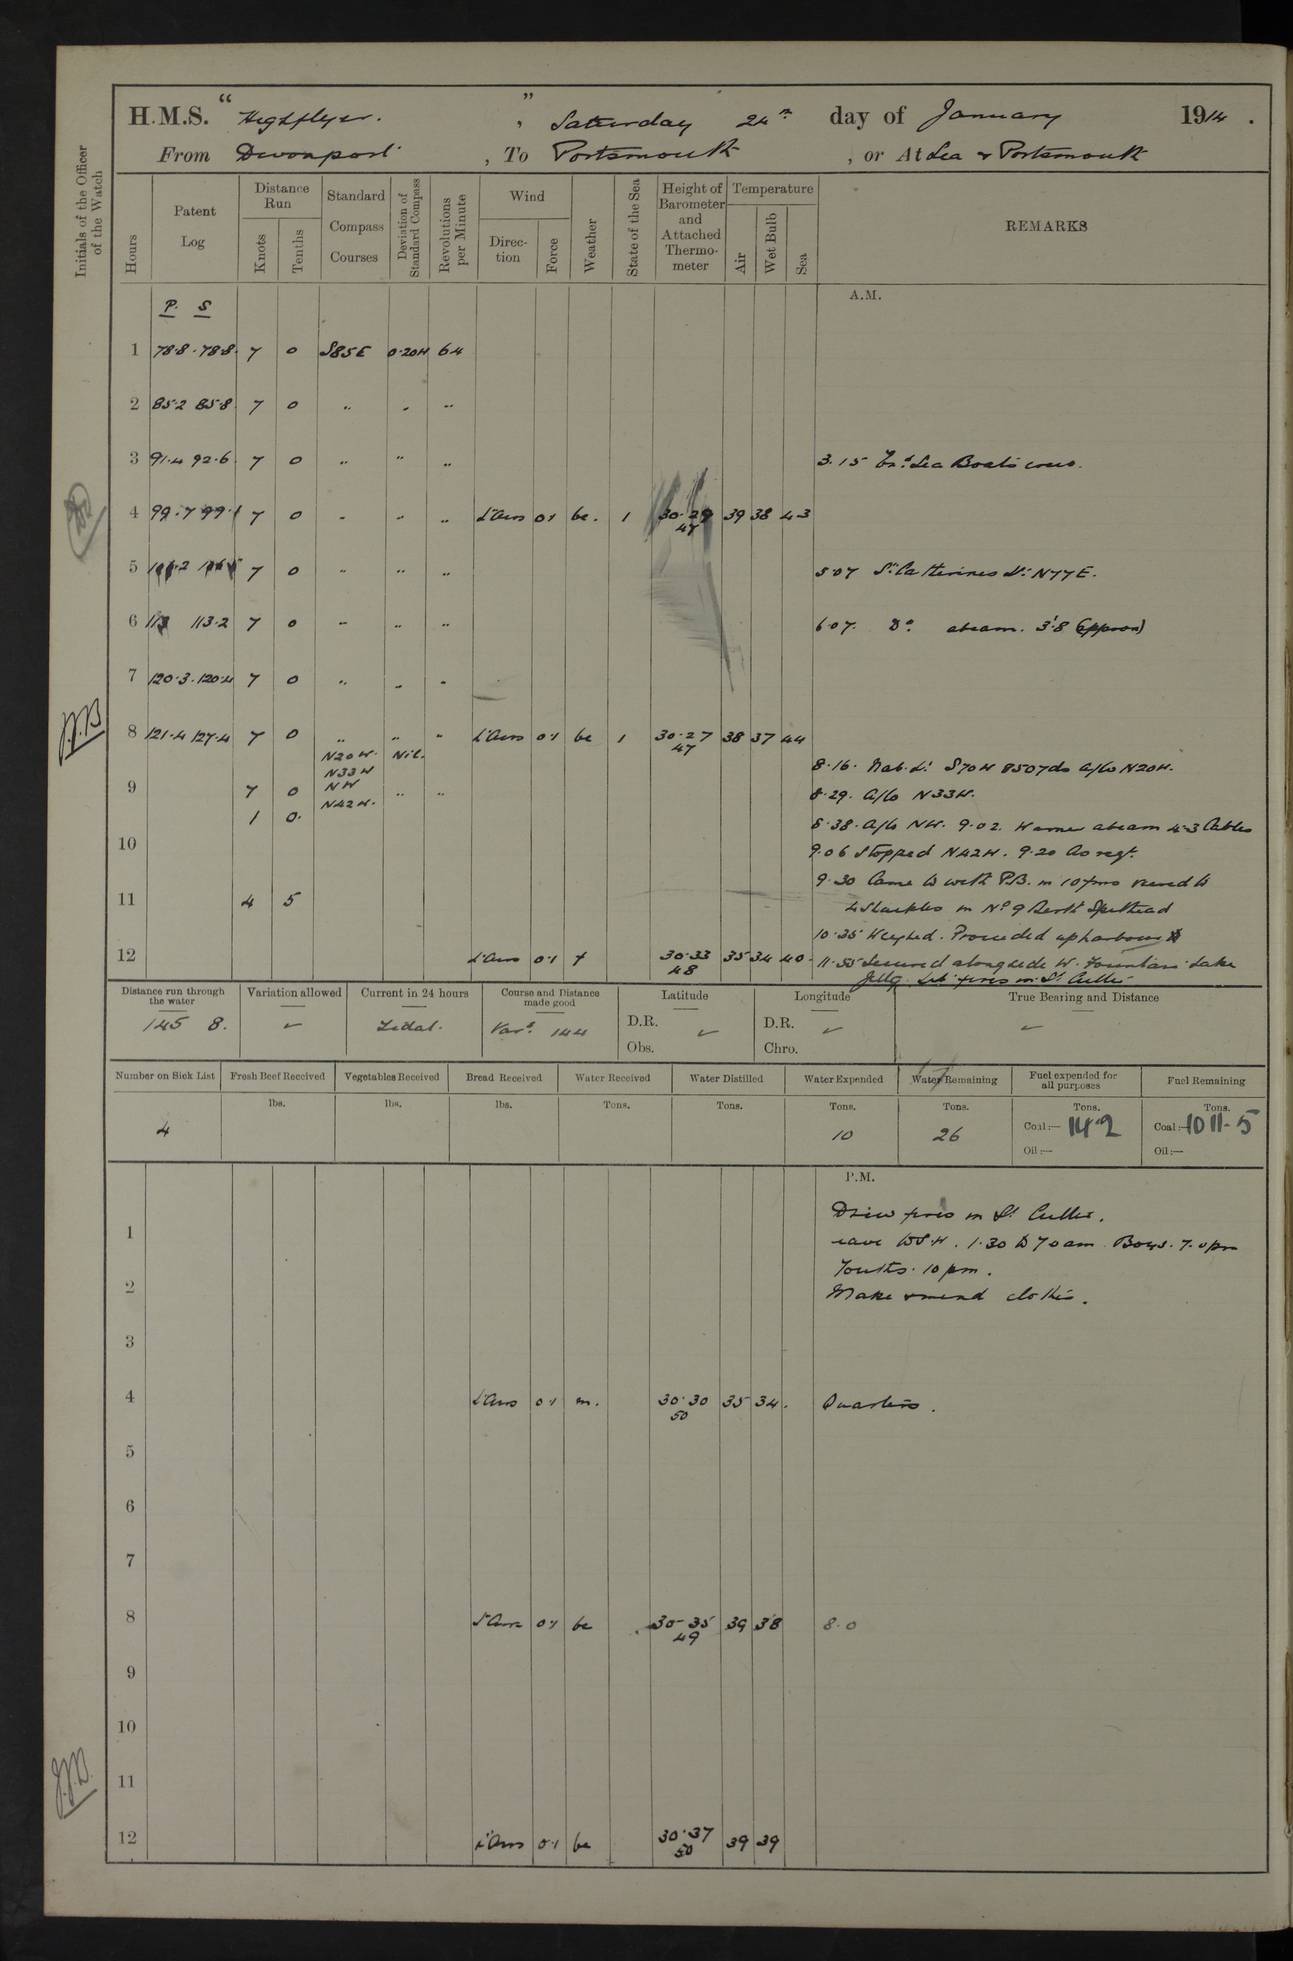 H.M.S. "Highflyer.", Saturday 24th day of January 1914.
From Devonport, To Portsmouth, or At Sea & Portsmouth
Initials of the Officer of the Watch
Hours
Patent Log
Distance Run
Knots
Tenths
Standard Compass Courses
Deviation of Standard Compass
Revolutions per Minute
Wind
Direction
Force
Weather
State of the Sea
Height of Barometer and Attached Thermometer
Temperature
Air
Wet Bulb
Sea
REMARKS
A.M.
P. S
1 78.8. 78.8. 7 0 S85E 0.20W 64
2 85.2 85.8 7 0 " " "
3 91.4 92.6 7 0 " " " 3.15 Exd Sea Boats crews.
4 99.7 99.1 7 0 " " " L'Airs 0.1 bc. 1 30.29 39 38 43
47
5 7 0 " " " 5.07 St Catherines Lt N77E.
6 113 113.2 7 0 " " " 6.07. Do abeam. 3'.8 (approx)
7 120.3. 120.4 7 0 " " "
8 121.4 127.4 7 0 " " " L'Airs 0.1 bc 1 30.27 38 37 44
47
N20W. Nil.
8.16. Nab Lt S70W 8507yds a/co N20W.
N33W
9 7 0 NW " "
8.29. a/co N33W.
N42W.
1 0.
8.38. a/co NW. 9.02. Warner abeam 4.3 Cables
10
9.06 Stopped N42W. 9.20 As reqt.
9.30 Came to with P.B. in 10 fms veered to
11 4 5
4 shackles in No 9 Berth Spithead
10.35 Weighed. Proceeded up harbour
12 L'Airs 0.1 f 30.33 35 34 40
48
11.55 Secured alongside W. Fountain Lake
Jetty. Lit fires in St Cutter
Distance run through the water
145 8.
Variation allowed
Current in 24 hours
Tidal.
Course and Distance made good
Vars. 144
Latitude
D.R.
Obs.
Longitude
D.R.
Chro.
True Bearing and Distance
Number on Sick List
4
Fresh Beef Received
lbs.
Vegetables Received
lbs.
Bread Received
lbs.
Water Received
Tons.
Water Distilled
Tons.
Water Expended
Tons.
10
Water Remaining
Tons.
26
Fuel expended for all purposes
Tons.
Coal:— 142
Oil:—
Fuel Remaining
Tons.
Coal:— 1011.5
Oil:—
P.M.
Drew fires in St Cutter.
1
eave to S.W. 1.30 to 7.0 am. Boys. 7.0 pm
Youths. 10 pm.
2
Make & mend clothes.
3
4 L'Airs 0.1 m. 30.30 35 34. Quarters.
50
5
6
7
8 L'Airs 0.1 bc 30.35 39 38 8.0
49
9
10
11
12 L'Airs 0.1 bc 30.37 39 39
50